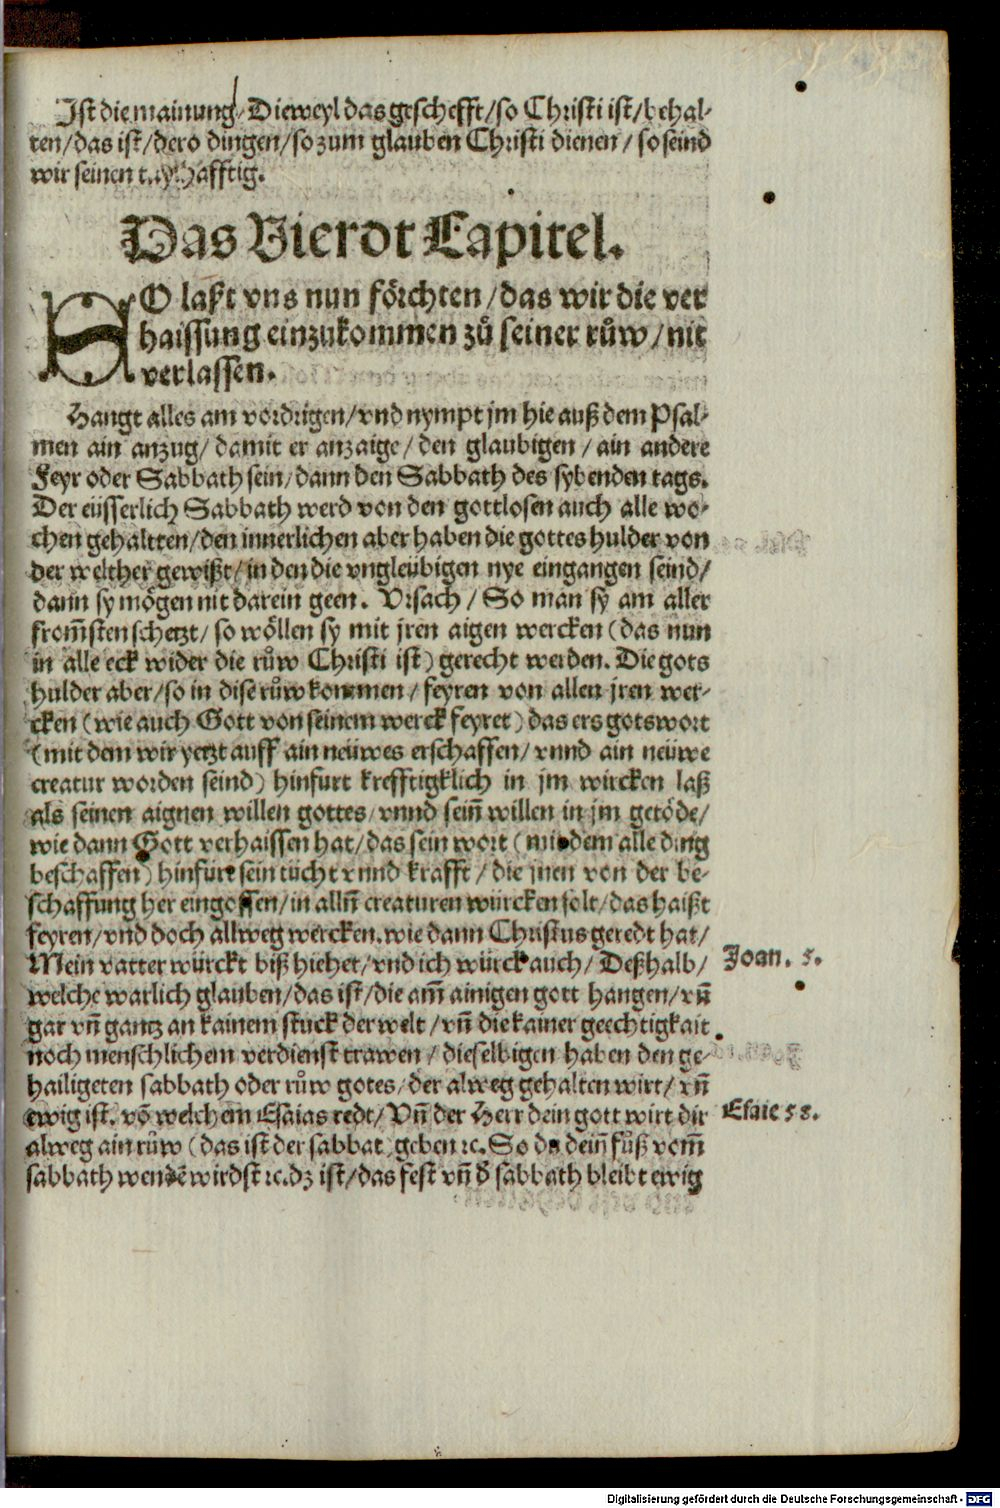 Ist die mainung/ Dieweyl das geschefft/ so Christi ist/ behal-
ten/ das ist/ dero dingen/ so zum glauben Christi dienen/ so seind
wir seinen hafftig.
Das Vierdt Capitel.
SO laßt vns nun förchten/ das wir die ver
haissung einzukommen zů seiner růw/ nit
verlassen.
Hangt alles am vordrigen/ vnd nympt jm hie auß dem Psal-
men ain anzug/ damit er anzaige/ den glaubigen/ ain andere
Feyr oder Sabbath sein/ dann den Sabbath des sybenden tags.
Der eüsserlich Sabbath werd von den gottlosen auch alle wo-
chen gehaltten/ den innerlichen aber haben die gottes hulder von
der welt her gewißt/ in den die vngleübigen nye eingangen seind/
dann sy mögen nit darein geen. Vrsach/ So man sy am aller
from̅sten schetzt/ so wöllen sy mit jren aigen wercken (das nun
in alle eck wider die růw Christi ist) gerecht werden. Die gots
hulder aber/ so in dise růw kommen/ feyren von allen jren wer-
cken (wie auch Gott von seinem werck feyret) das ers gotswort
(mit dem wir yetzt auff ain neüwes erschaffen/ vnnd ain neüwe
creatur worden seind) hinfurt krefftigklich in jm wircken laß
als seinen aignen willen gottes/ vnnd sein̅ willen in jm getöde/
wie dann Gott verhaissen hat/ das sein wort (mit dem alle ding
beschaffen) hinfurt sein tücht vnnd krafft/ die jnen von der be-
schaffung her eingossen/ in alln̅ creaturen würcken solt/ das haißt
feyren/ vnd doch allweg wercken. wie dann Christus geredt hat/
Mein vatter würckt biß hieher/ vnd ich würck auch/ Deßhalb/
Joan. 5.
welche warlich glauben/ das ist/ die am̅ ainigen gott hangen/ vn̅
gar vn̅ gantz an kainem stuck der welt/ vn̅ die kainer geechtigkait
noch menschlichem verdienst trawen/ dieselbigen haben den ge-
hailigeten sabbath oder růw gotes/ der alweg gehalten wirt/ vn̅
ewig ist. vō welchem Esaias redt/ Vn̅ der Herr dein gott wirt dir
Esaie 58.
alweg ain růw (das ist der sabbat) geben ꝛc. So du dein̅ fůß vom̅
sabbath wendē wirdst ꝛc. dz ist/ das fest vn̅ d̅ sabbath bleibt ewig
Digitalisierung gefördert durch die Deutsche Forschungsgemeinschaft - DFG